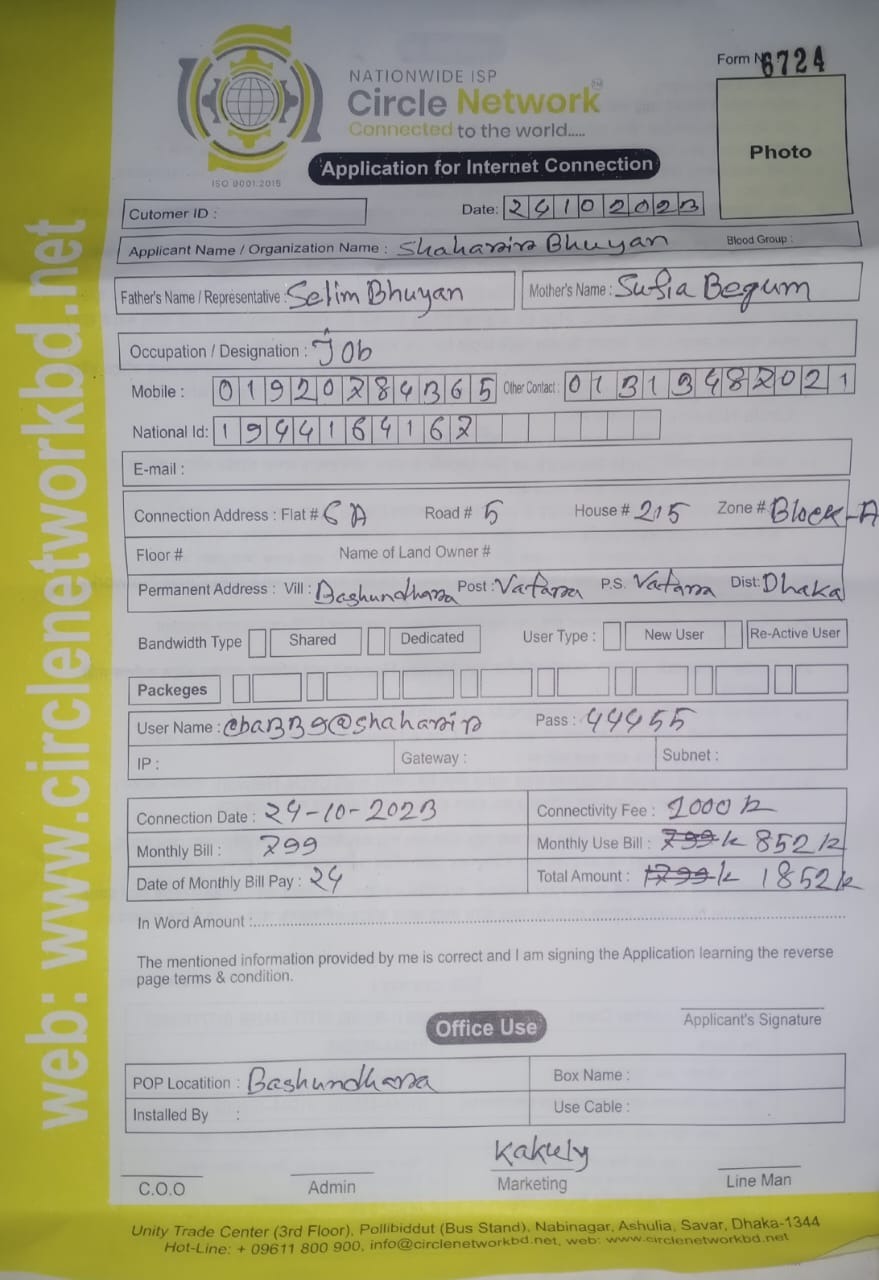 Form No 6724
NATIONWIDE ISP
Circle Network
Connected to the world.....
ISO 9001:2015
Application for Internet Connection
Photo
Cutomer ID :
Date: 24102023
Applicant Name / Organization Name : Shaharin Bhuyan Blood Group :
Father's Name / Representative : Selim Bhuyan Mother's Name : Sufia Begum
Occupation / Designation : Job
Mobile : 01920784365 Other Contact : 01313482021
National Id: 1944164167
E-mail :
Connection Address : Flat # 6A Road # 5 House # 215 Zone # Block-A
Floor # Name of Land Owner #
Permanent Address : Vill : Bashundhara Post : Vatara P.S. Vatara Dist: Dhaka
Bandwidth Type Shared Dedicated User Type : New User Re-Active User
Packeges
User Name : cba339@shaharin Pass : 44455
IP : Gateway : Subnet :
Connection Date : 24-10-2023 Connectivity Fee : 1000 k
Monthly Bill : 799 Monthly Use Bill : 799 k 852 k
Date of Monthly Bill Pay : 24 Total Amount : 1799 k 1852 k
In Word Amount :
The mentioned information provided by me is correct and I am signing the Application learning the reverse
page terms & condition.
Applicant's Signature
Office Use
POP Locatition : Bashundhara Box Name :
Installed By : Use Cable :
Kakuly
C.O.O Admin Marketing Line Man
Unity Trade Center (3rd Floor), Pollibiddut (Bus Stand), Nabinagar, Ashulia, Savar, Dhaka-1344
Hot-Line: + 09611 800 900, info@circlenetworkbd.net, web: www.circlenetworkbd.net
web: www.circlenetworkbd.net